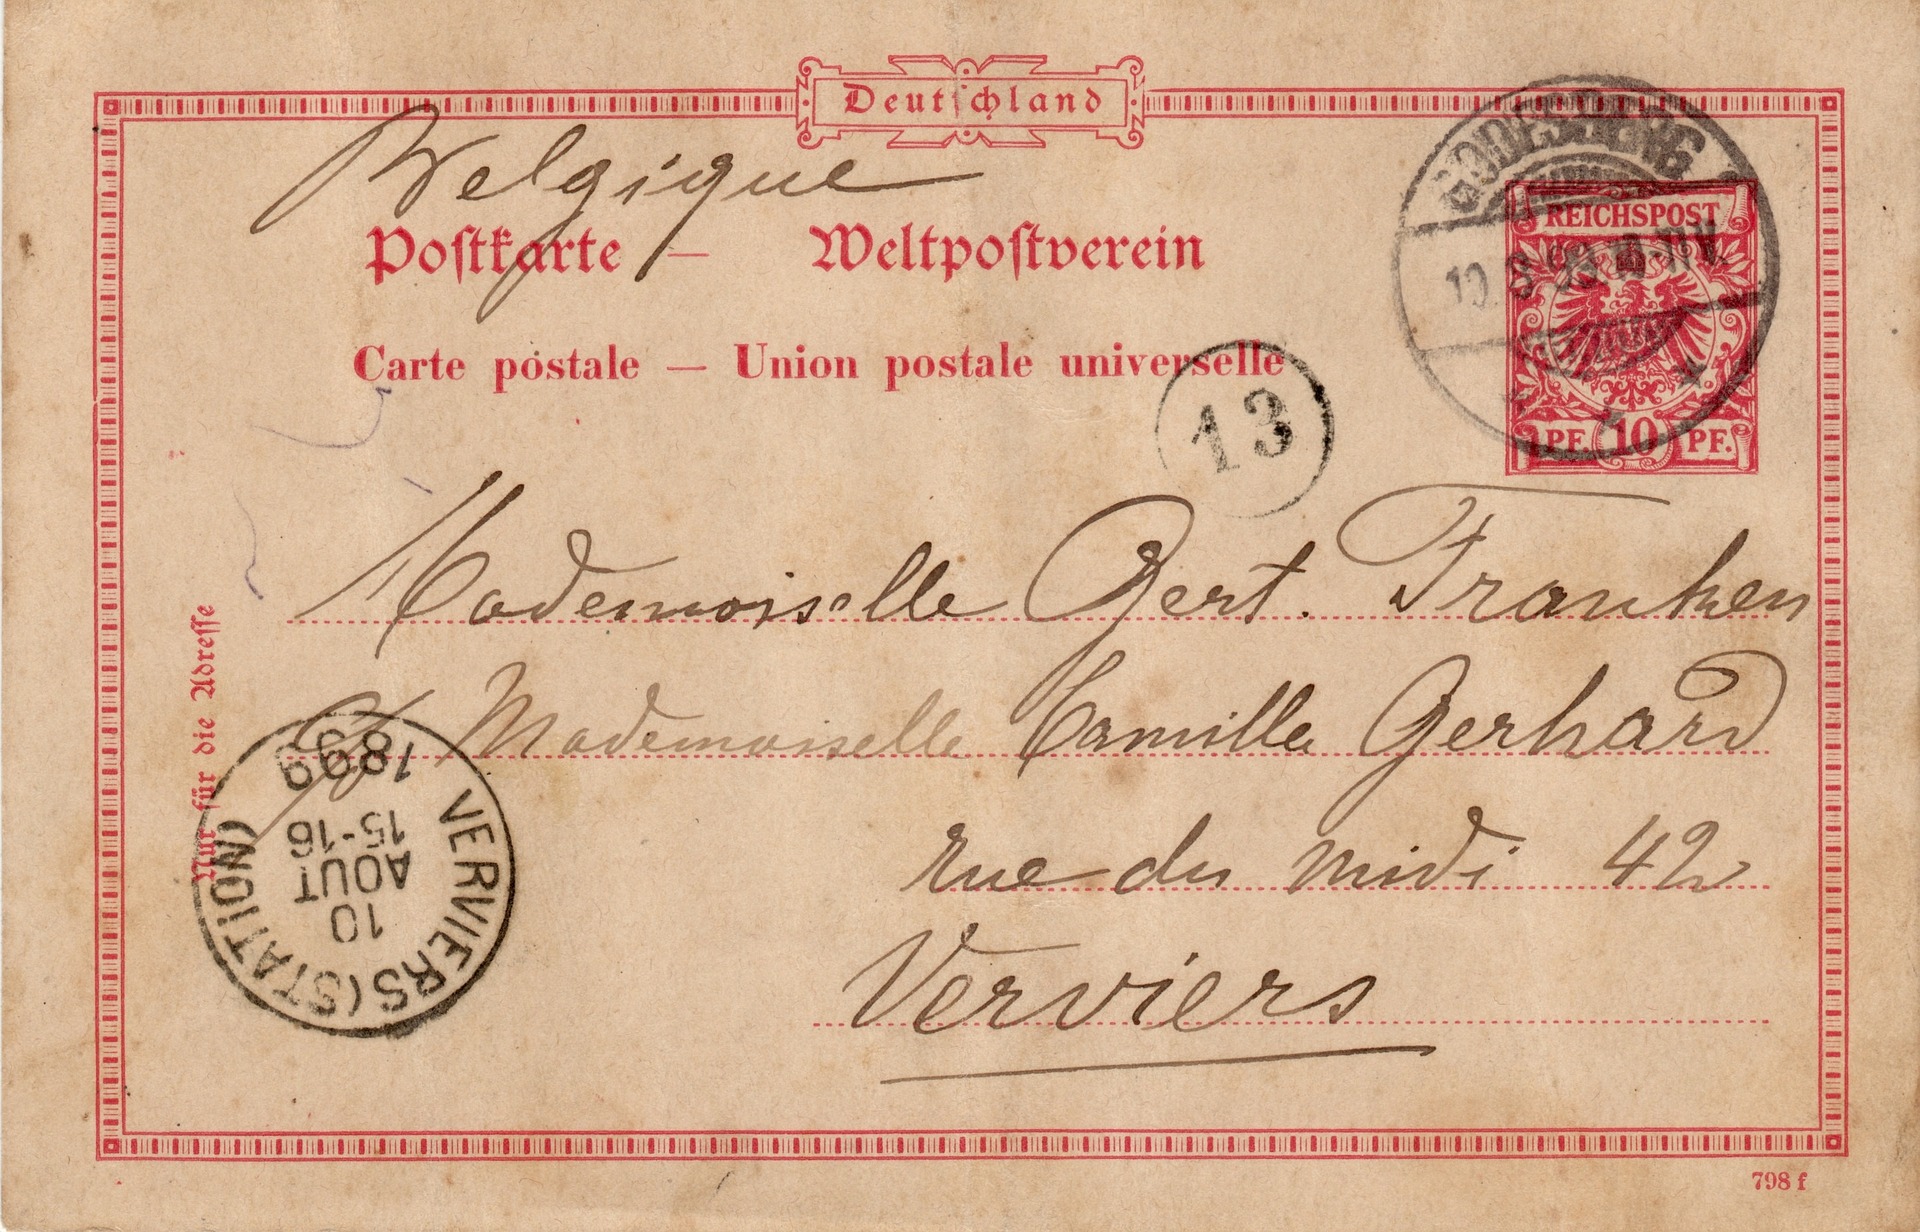 Deutschland
Belgique
Postkarte — Weltpostverein
Carte postale — Union postale universelle
GODESBERG
10.8.99 10-11V.
REICHSPOST
PF. 10 PF.
13
Mademoiselle Gert. Franken
c/ Mademoiselle Camilla Gerhard
rue du midi 42
Verviers
Nur für die Adresse
VERVIERS (STATION)
10
AOUT
15-16
1899
798 f